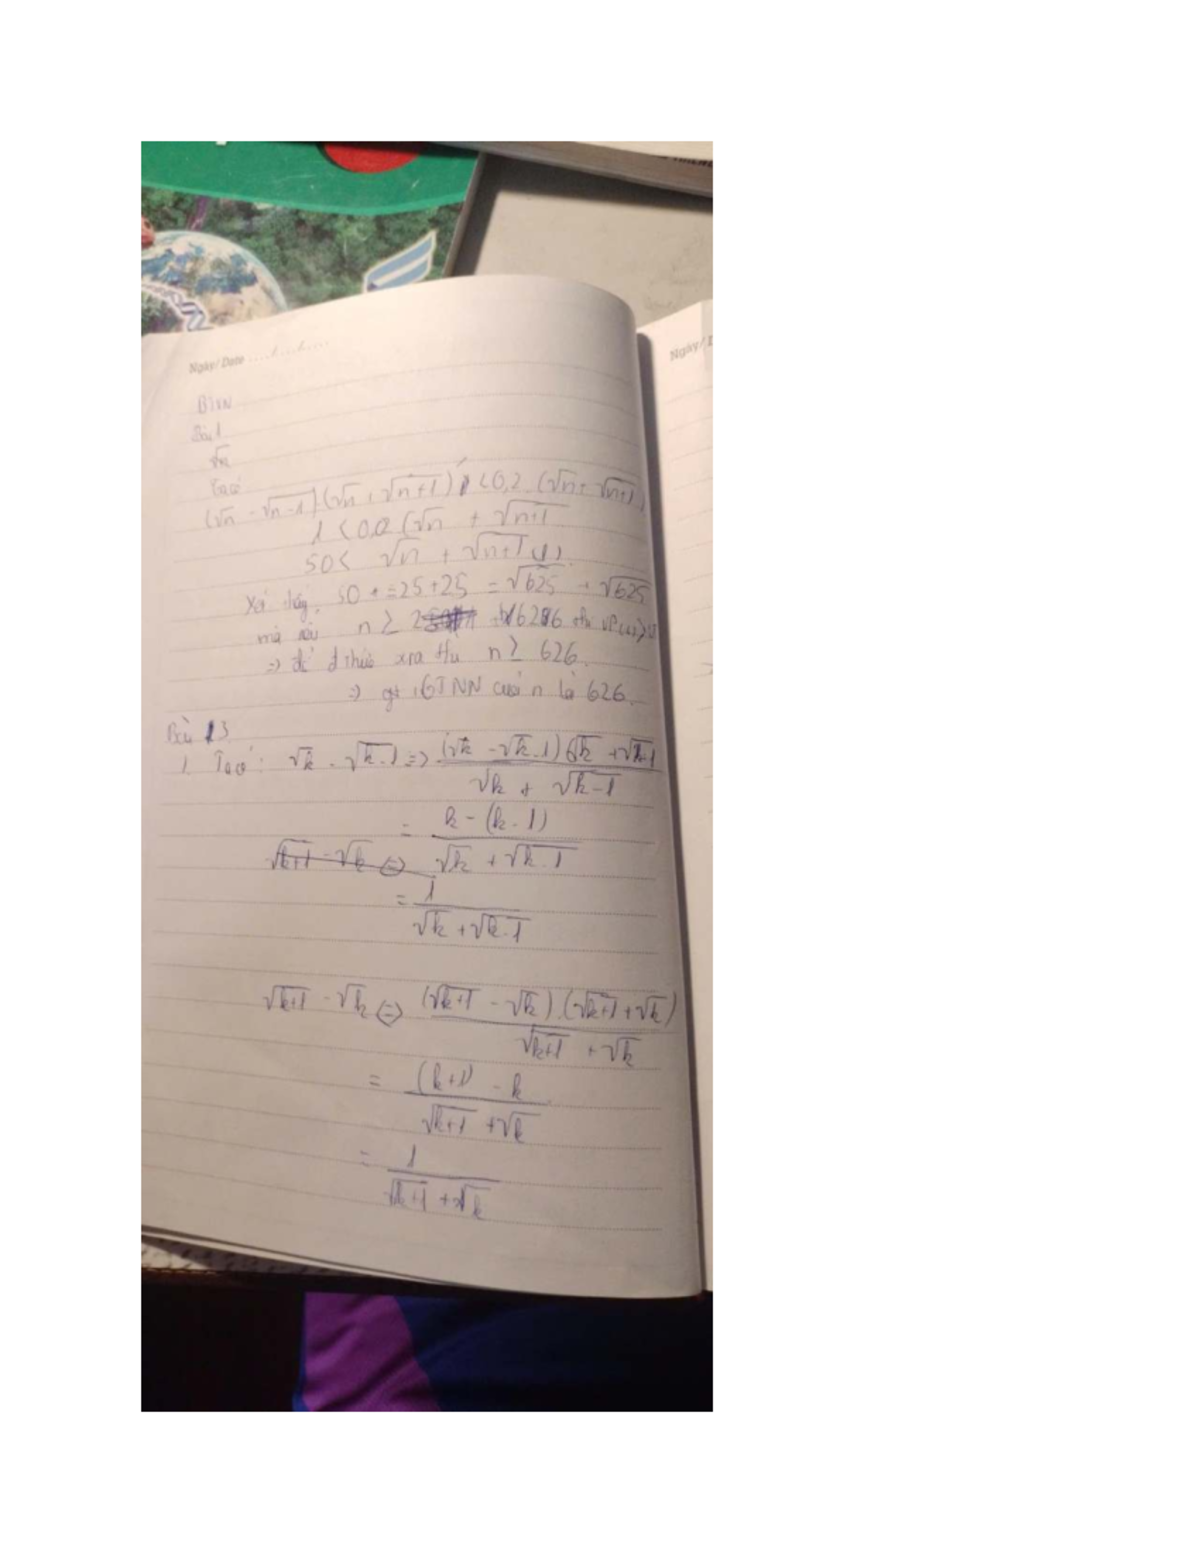 Ngày/ Date
Ngày/
BTVN
Bài 1
√n
Ta có
(√n - √n-1).(√n + √n+1) < 0,2 (√n + √n+1)
1 < 0,02 (√n + √n+1
50 < √n + √n+1 (1)
50 = 25+25 = √625 + √625
mà nếu n ≥ 626 thì
=> để đ thức xra thì n ≥ 626.
=> GTNN của n là 626.
Bài 3
1. Ta có: √k - √k-1 => (√k - √k-1)(√k + √k-1
√k + √k-1
= k - (k-1)
√k+1 - √k <=> √k + √k-1
= 1
√k + √k-1
√k+1 - √k <=> (√k+1 - √k).(√k+1 + √k)
√k+1 + √k
= (k+1) - k
√k+1 + √k
= 1
√k+1 + √k